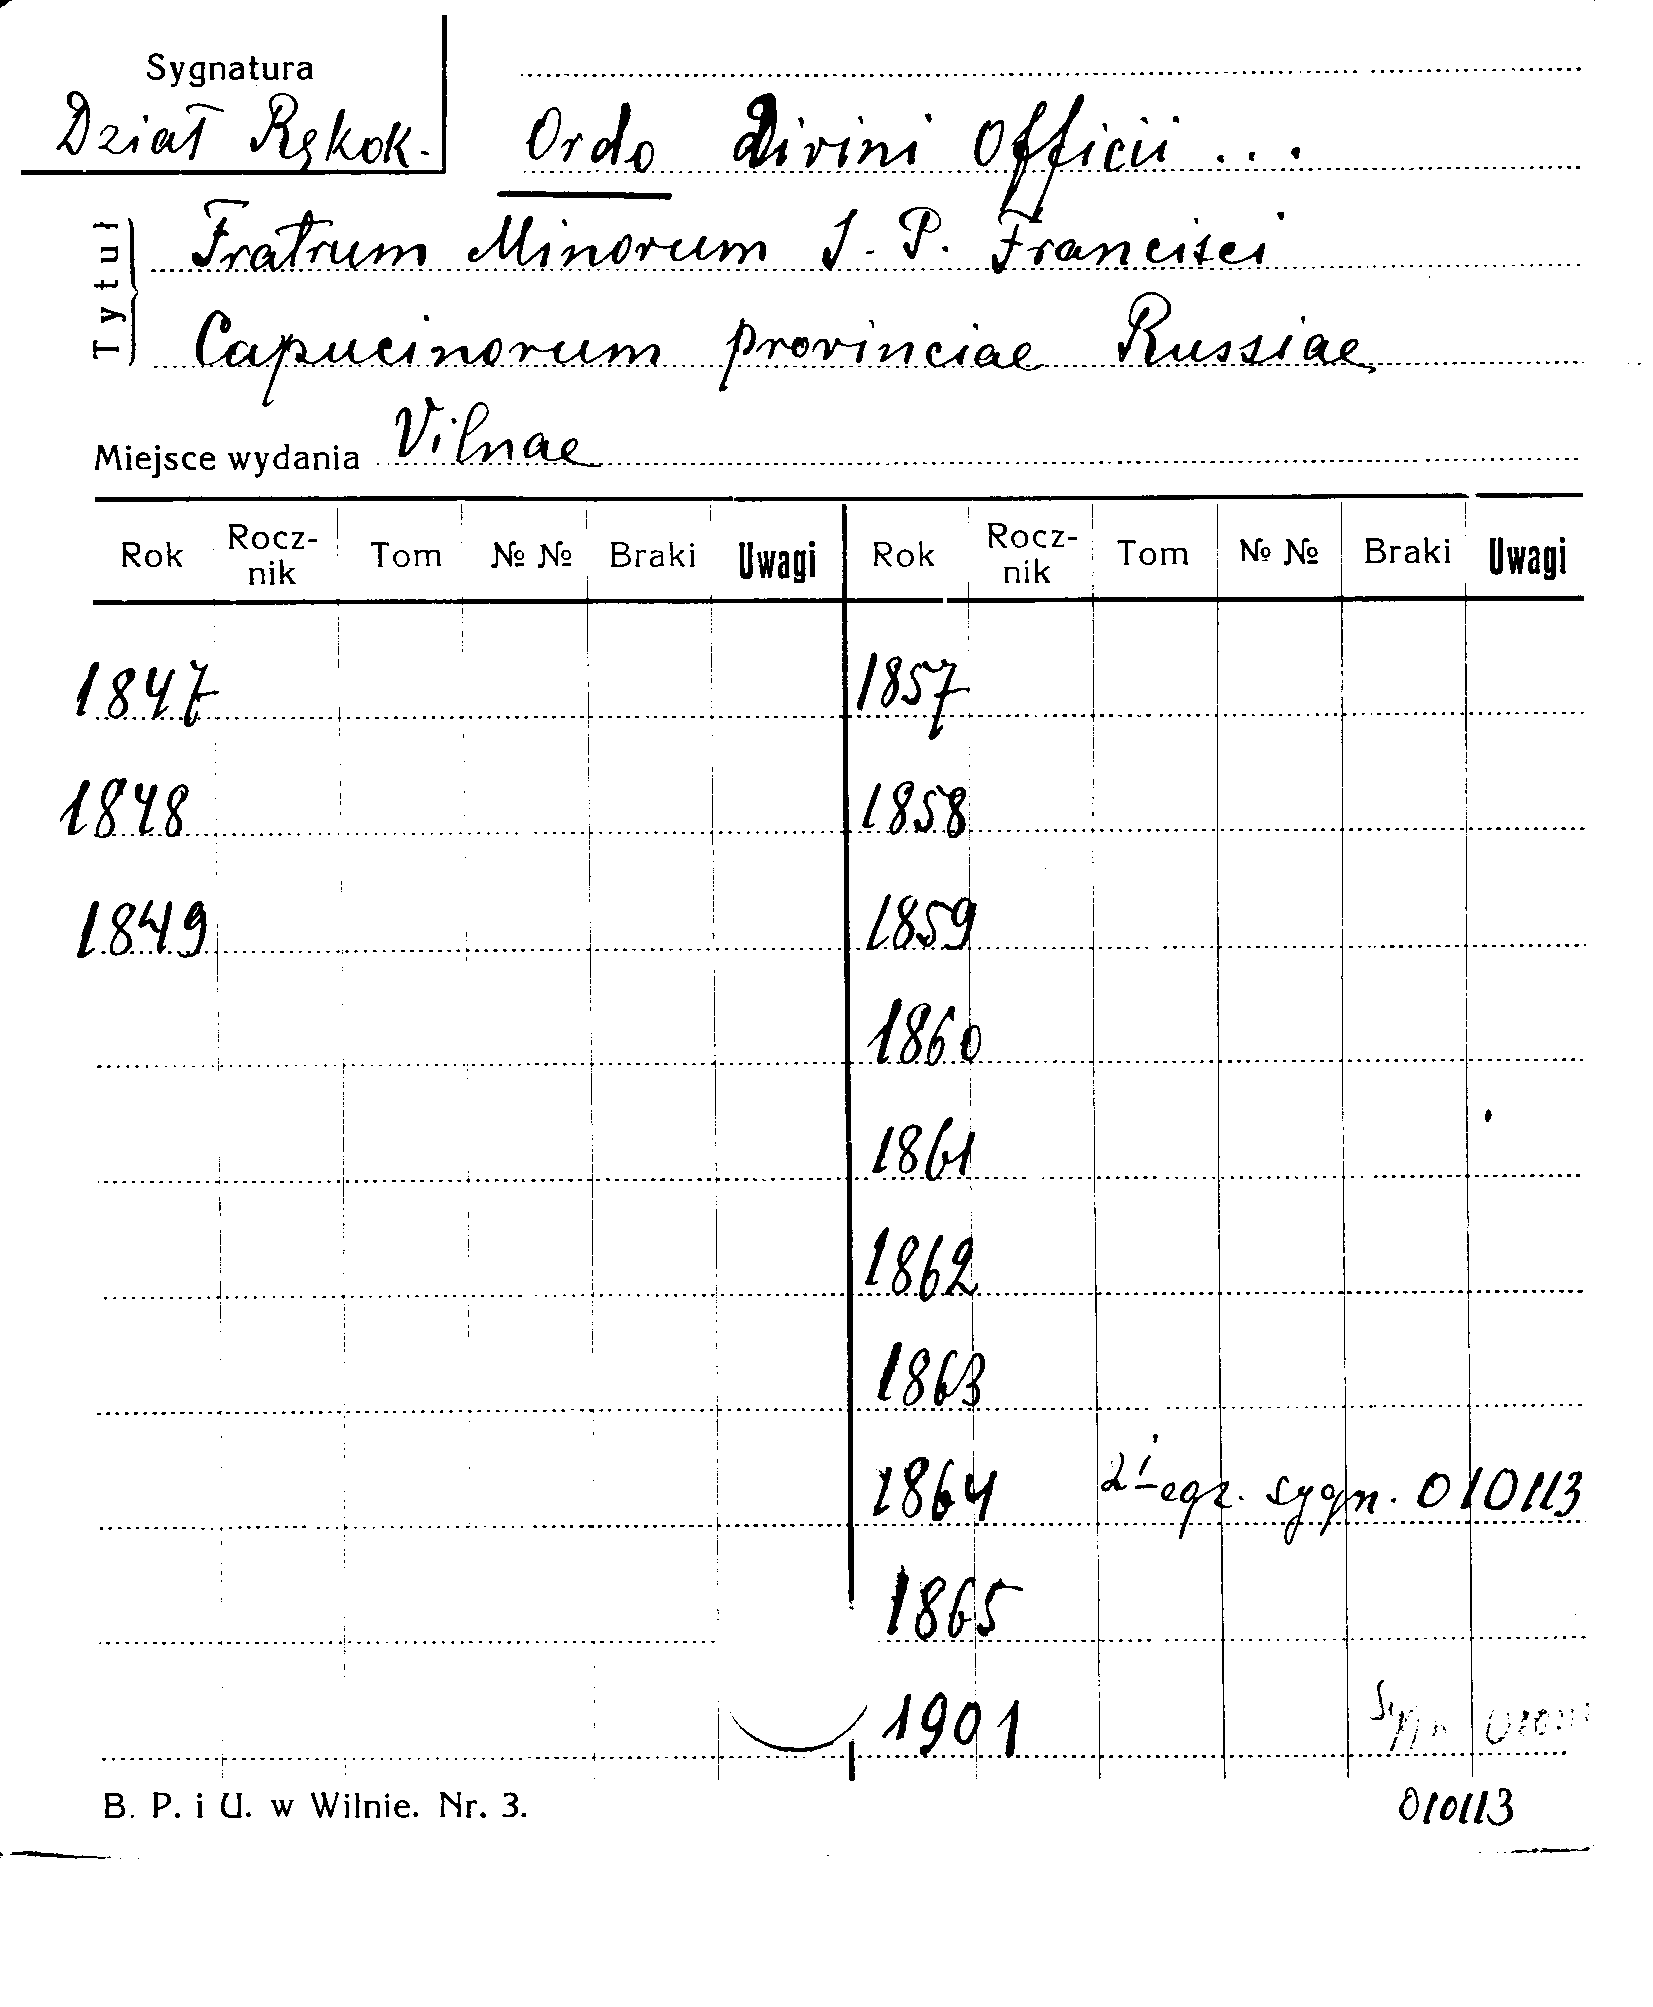 Sygnatura
Dział Rękok.
Ordo Divini Officii ...
Tytuł
Fratrum Minorum S. P. Francisci
Capucinorum provinciae Russiae
Miejsce wydania Vilnae
Rok Rocz-nik Tom № № Braki Uwagi Rok Rocz-nik Tom № № Braki Uwagi
1847 1857
1848 1858
1849 1859
1860
1861
1862
1863
1864 2i egz. sygn. 010113
1865
1901
B. P. i U. w Wilnie. Nr. 3. 010113